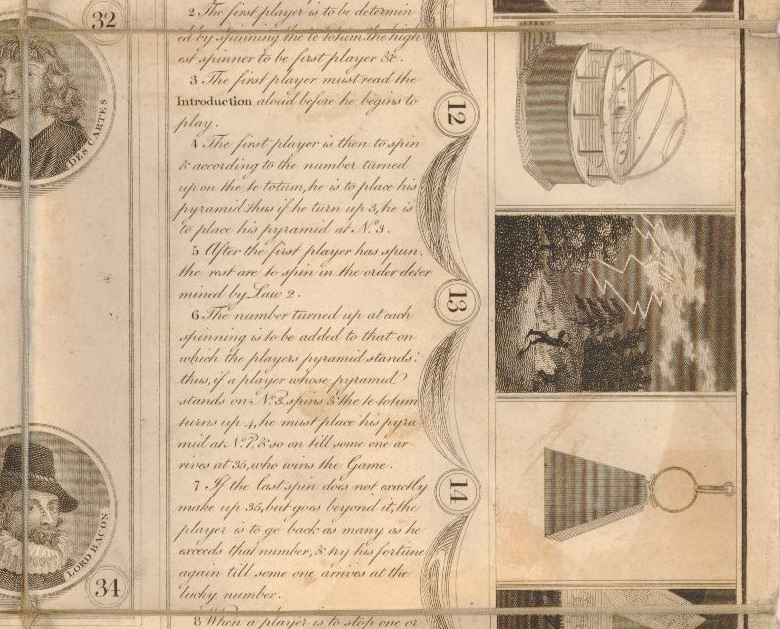 32
DES CARTES
LORD BACON
34
2 The first player is to be determin
ed by spinning the te totum. the high
est spinner to be first player &c.
3 The first player must read the
Introduction aloud before he begins to
play.
4 The first player is then to spin
& according to the number turned
up on the te totum, he is to place his
pyramid thus if he turn up 3, he is
to place his pyramid at N.º 3.
5 After the first player has spun,
the rest are to spin in the order deter
mined by Law 2.
6 The number turned up at each
spinning is to be added to that on
which the players pyramid stands:
thus, if a player whose pyramid
stands on N.º 3. spins & the te totum
turns up 4, he must place his pyra
mid at N.º 7, & so on till some one ar-
rives at 35, who wins the Game.
7 If the last spin does not exactly
make up 35, but goes beyond it, the
player is to go back as many as he
exceeds that number, & try his fortune
again till some one arrives at the
lucky number.
8 When a player is to stop one or
12
13
14